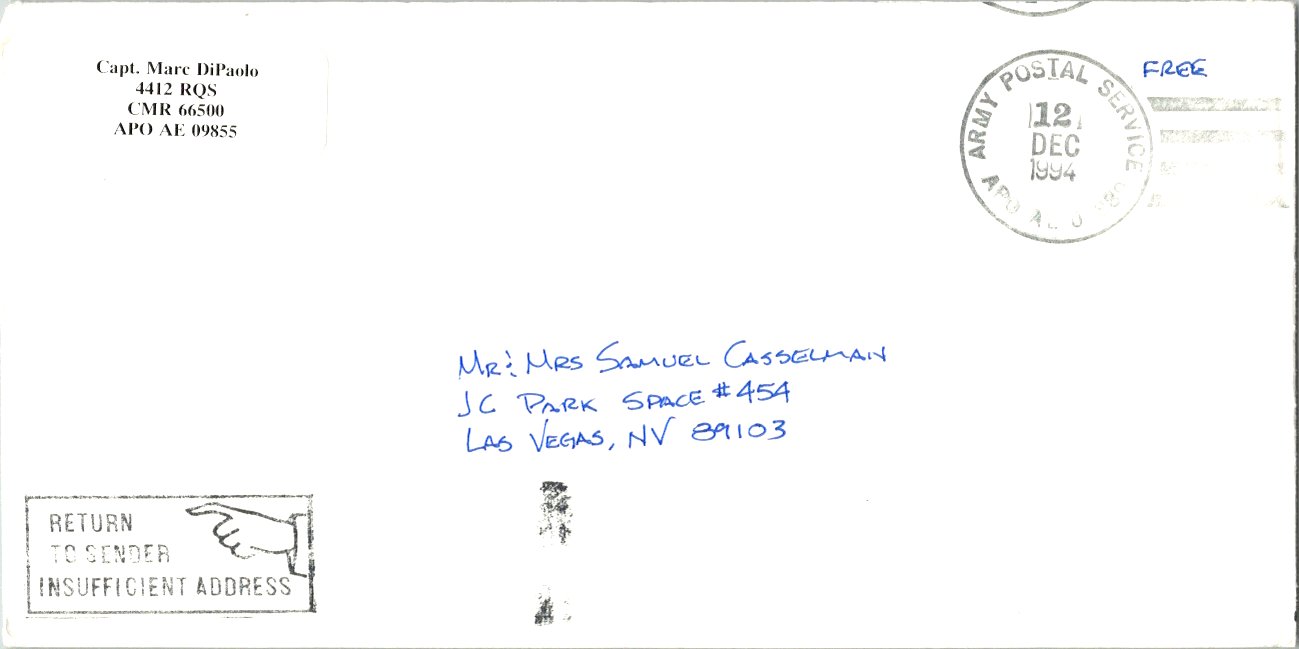 Capt. Marc DiPaolo
4412 RQS
CMR 66500
APO AE 09855
ARMY POSTAL SERVICE
12
DEC
1994
APO AE
FREE
Mr & Mrs Samuel Casselman
JC Park Space #454
Las Vegas, NV 89103
RETURN
TO SENDER
INSUFFICIENT ADDRESS